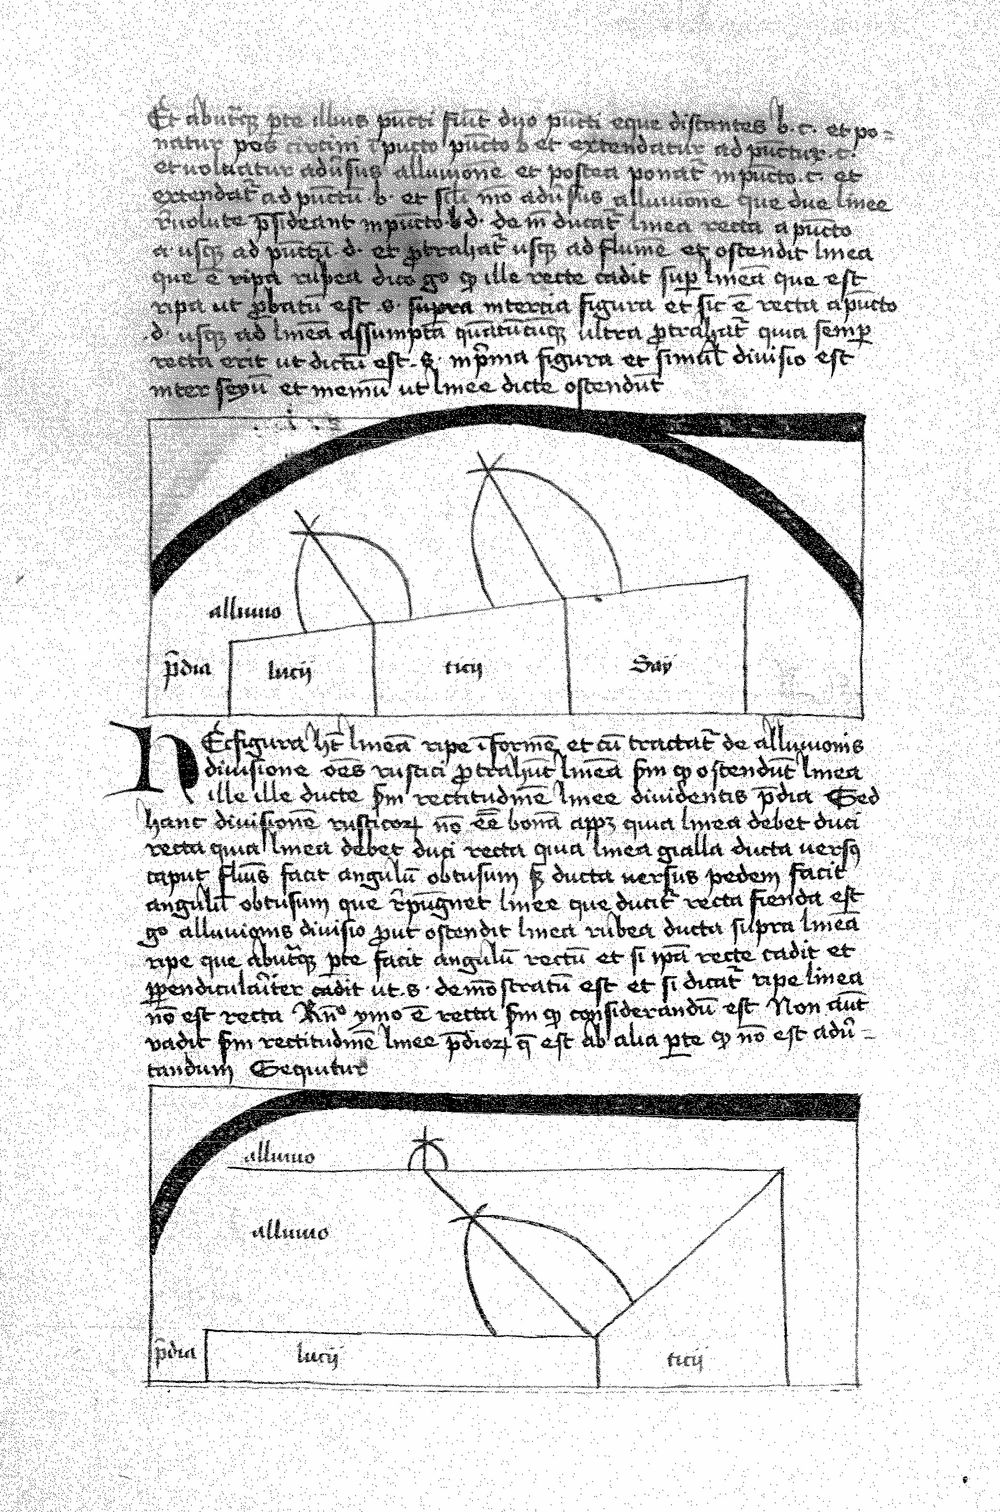 Et abutrq̃ pte illius pũcti fiũt duo pũcti eque distantes b.c. et po=
natur pes circini ĩ pucto pũcto b et extendatur ad pũctuz .c.
et uoluatur adũsus alluuionẽ et postea ponat̃ in pũcto .c. et
extendat̃ ad pũctũ b. et sił̃i mõ adũsus alluuionẽ que due linee
r̃uolute p̃sideant in pũcto d. deĩ ducat̃ linea recta a pũcto
a. usq̃ ad pũctũ d. et ꝓtrahat̃ usq̃ ad flumẽ et ostendit linea
que ẽ ripa rubea dico g̊o ꝙ ille recte cadit suꝑ lineã que est
ripa ut ꝓbatũ est .s. supra in tercia figura et sic ẽ recta a pũcto
.d. usq̃ ad lineã assumptã quãtũcũq̃ ultra ꝓtrahat̃ quia semꝑ
recta erit ut dictũ est .s. in p̃ma figura et simił diuisio est
inter seyũ et meuiũ ut linee dicte ostendũt
alluuio
p̃dia
lucij
ticij
Saij
HEc figura h̃t lineã ripe ĩformẽ et cũ tractat̃ de alluuionis
diuisione oẽs rustici ꝓtrahũt lineã s̃m ꝙ ostendũt linea
ille ille ducte s̃m rectitudinẽ linee diuidentis p̃dia Sed
hanc diuisionẽ rusticoꝝ nõ ẽẽ bonã appꝫ quia linea debet duci
recta quia linea debet duci recta quia linea gialla ducta uersꝰ
caput flũis facit angulũ obtusum sꝫ ducta uersus pedem facit
angulũ obtusum que r̃pũgnet linee que ducit̃ recta fienda est
g̊o alluuionis diuisio ꝓut ostendit linea rubea ducta supra lineã
ripe que abutrq̃ pte facit angulũ rectũ et si ip̃a recte cadit et
ꝑpendicułar̃iter cadit ut .s. demõstratũ est et si dicat̃ ripe linea
nõ est recta R̃n̊ ymo ẽ recta s̃m ꝙ considerandũ est Non aũt
uadit s̃m rectitudinẽ linee p̃dioꝝ q̃ est ab alia pte ꝙ nõ est adũ=
tandum Sequitur
alluuio
alluuio
p̃dia
lucij
ticij